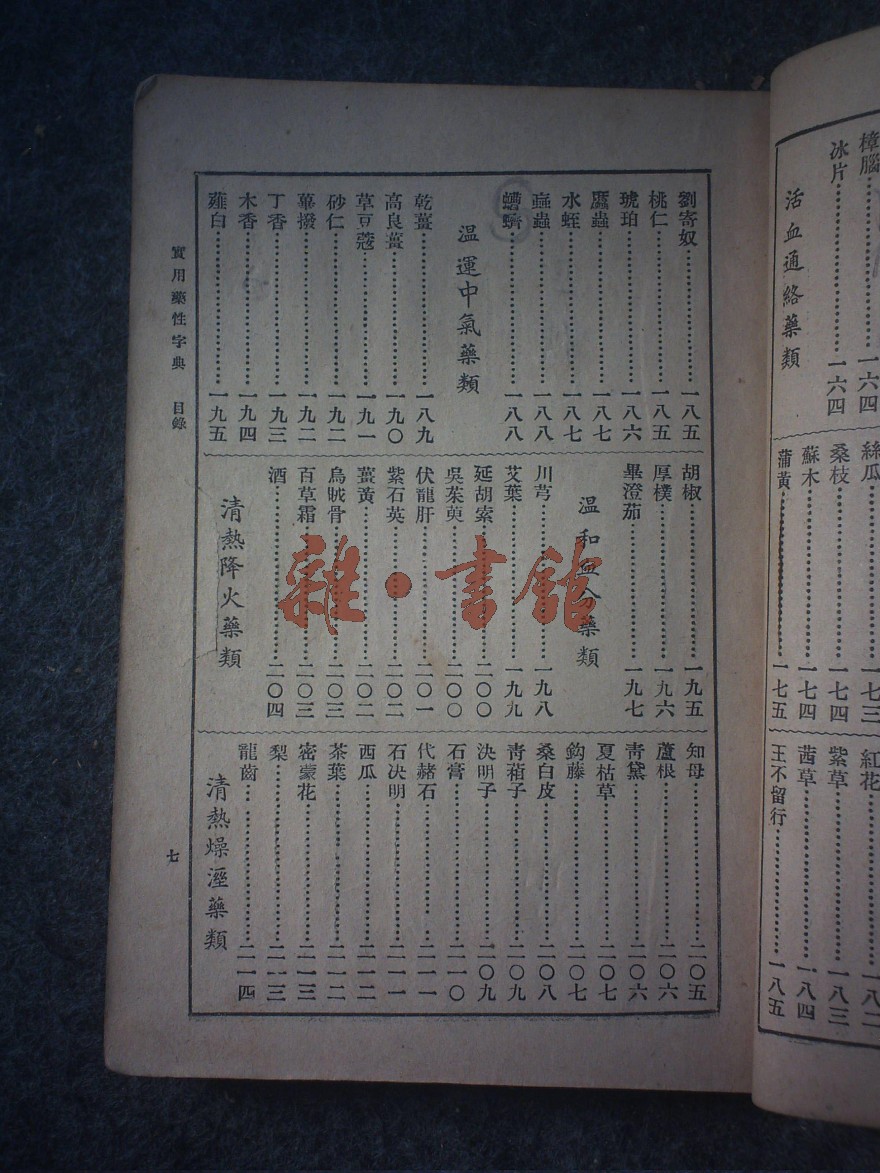 樟腦…一六四
冰片…一六四
活血通絡藥類
絲瓜…一七三
桑枝…一七四
蘇木…一七四
蒲黃…一七五
紅花…一八二
紫草…一八三
茜草…一八四
王不留行…一八五
劉寄奴…一八五
桃仁…一八五
琥珀…一八六
䗪蟲…一八七
水蛭…一八七
蝱蟲…一八八
蠐螬…一八八
温運中氣藥類
乾薑…一八九
高良薑…一九〇
草豆蔻…一九一
砂仁…一九二
蓽撥…一九二
丁香…一九三
木香…一九四
薤白…一九五
胡椒…一九五
厚樸…一九六
畢澄茄…一九七
温和血分藥類
川芎…一九八
艾葉…一九九
延胡索…二〇〇
吳茱萸…二〇〇
伏龍肝…二〇一
紫石英…二〇二
薑黃…二〇二
烏賊骨…二〇三
百草霜…二〇三
酒…二〇四
清熱降火藥類
知母…二〇五
蘆根…二〇六
靑黛…二〇六
夏枯草…二〇七
鈎藤…二〇七
桑白皮…二〇八
靑葙子…二〇九
決明子…二〇九
石膏…二一〇
代赭石…二一一
石決明…二一一
西瓜…二一二
茶葉…二一二
密蒙花…二一三
梨…二一三
龍齒…二一四
清熱燥溼藥類
實用藥性字典 目錄
七
雜·書館